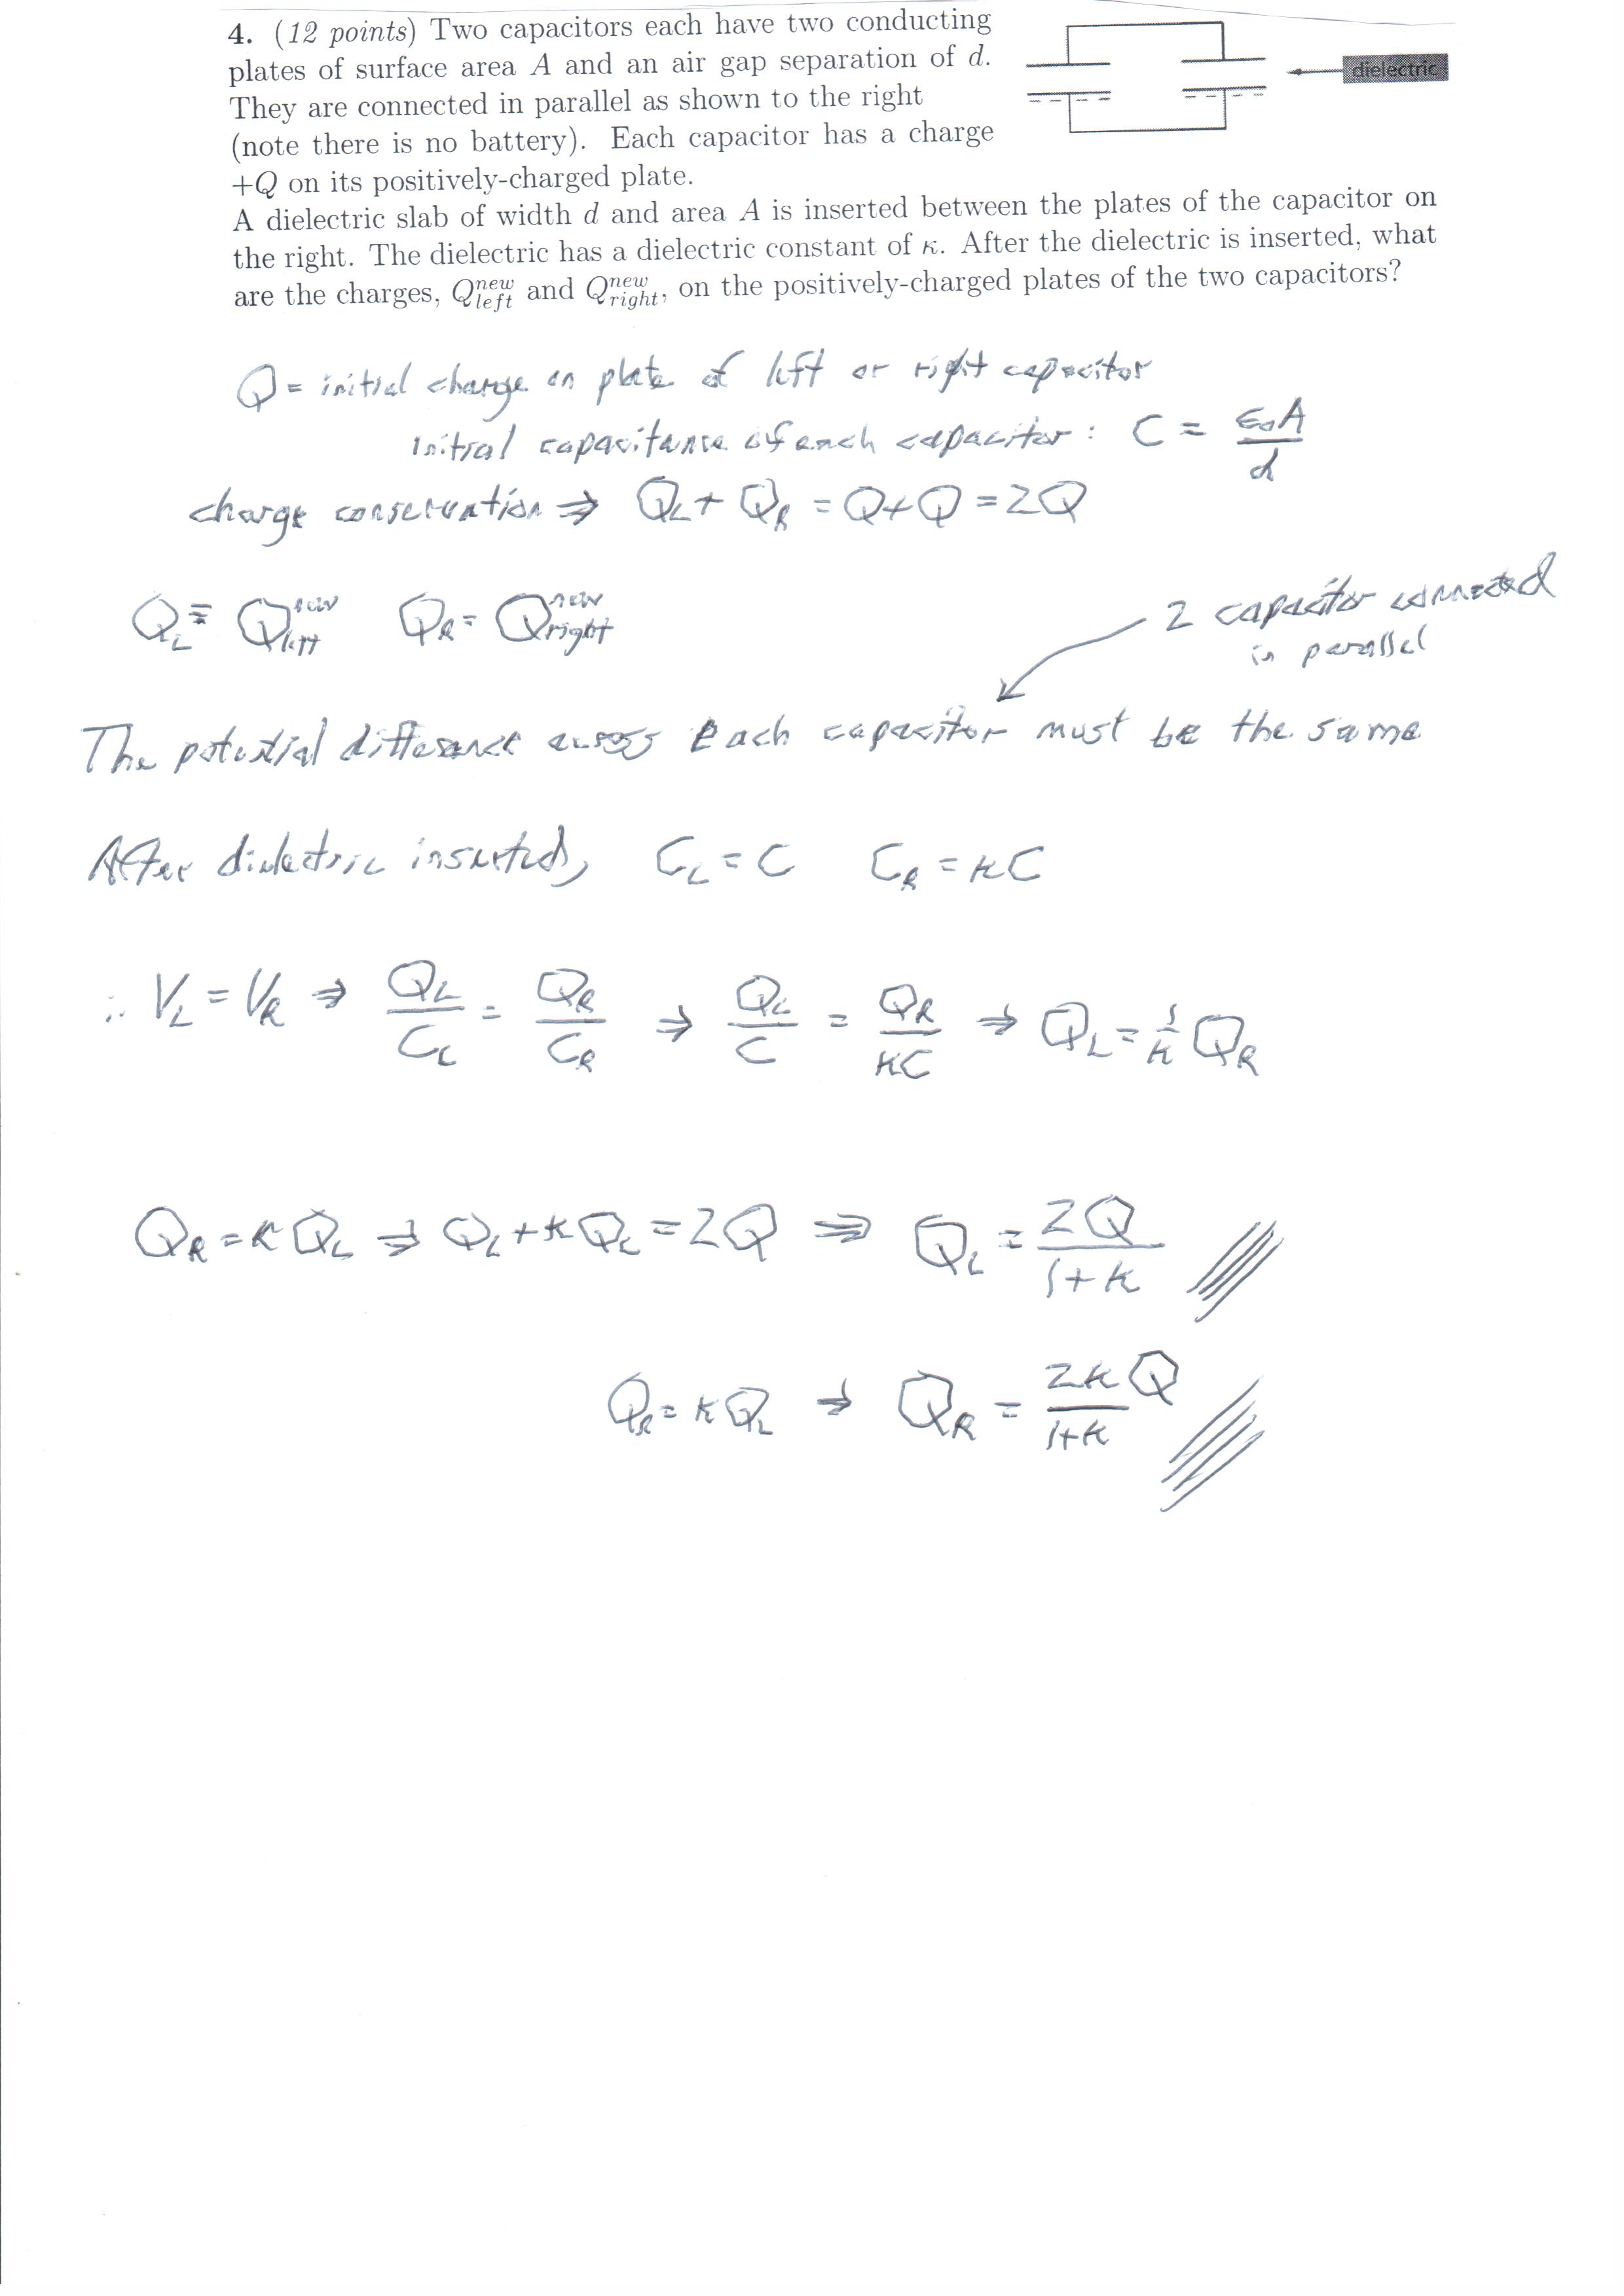 4. (12 points) Two capacitors each have two conducting
plates of surface area A and an air gap separation of d.
They are connected in parallel as shown to the right
(note there is no battery). Each capacitor has a charge
+Q on its positively-charged plate.
dielectric
A dielectric slab of width d and area A is inserted between the plates of the capacitor on
the right. The dielectric has a dielectric constant of κ. After the dielectric is inserted, what
are the charges, Q_left^new and Q_right^new, on the positively-charged plates of the two capacitors?
Q = initial charge on plate of left or right capacitor
initial capacitance of each capacitor: C = ε₀A/d
charge conservation ⇒ Q_L + Q_R = Q+Q = 2Q
Q_L ≡ Q_left^new Q_R = Q_right^new
2 capacitor connected
in parallel
The potential difference across each capacitor must be the same
After dielectric inserted, C_L = C C_R = κC
∴ V_L = V_R ⇒ Q_L/C_L = Q_R/C_R ⇒ Q_L/C = Q_R/κC ⇒ Q_L = 1/κ Q_R
Q_R = κQ_L ⇒ Q_L + κQ_L = 2Q ⇒ Q_L = 2Q/1+κ
Q_R = κQ_L ⇒ Q_R = 2κQ/1+κ